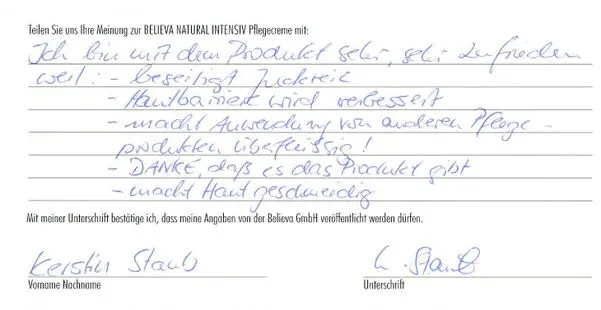 Teilen Sie uns Ihre Meinung zur BELIEVA NATURAL INTENSIV Pflegecreme mit:
Ich bin mit dem Produkt sehr, sehr zufrieden
weil: - beseitigt Juckreiz
- Hautbarriere wird verbessert
- macht Anwendung von anderen Pflege-
produkten überflüssig!
- DANKE, daß es das Produkt gibt
- macht Haut geschmeidig
Mit meiner Unterschrift bestätige ich, dass meine Angaben von der Believa GmbH veröffentlicht werden dürfen.
Kerstin Staub K. Staub
Vorname Nachname Unterschrift